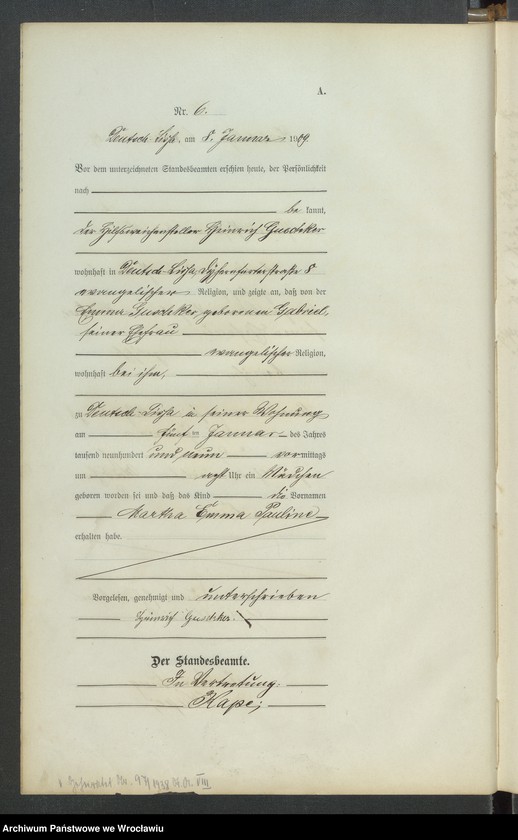 A.
Nr. 6.
Deutsch Lissa, am 8. Januar 1909
Vor dem unterzeichneten Standesbeamten erschien heute, der Persönlichkeit
nach
be kannt,
der Hilfsweichensteller Heinrich
wohnhaft in Deutsch-Lissa, Dyhernfurterstraße 8
evangelischer Religion, und zeigte an, daß von der
Emma geborenen Gabriel,
seiner Ehefrau
evangelischer Religion,
wohnhaft bei ihm,
zu Deutsch-Lissa in seiner Wohnung
am fünften Januar des Jahres
tausend neunhundert und neun vormittags
um acht Uhr ein Mädchen
geboren worden sei und daß das Kind die Vornamen
Martha Emma Pauline
erhalten habe.
Vorgelesen, genehmigt und unterschrieben
Heinrich
Der Standesbeamte.
In Vertretung.
Hape
Geheiratet Nr. 97/1938 St. A. VIII
Archiwum Państwowe we Wrocławiu